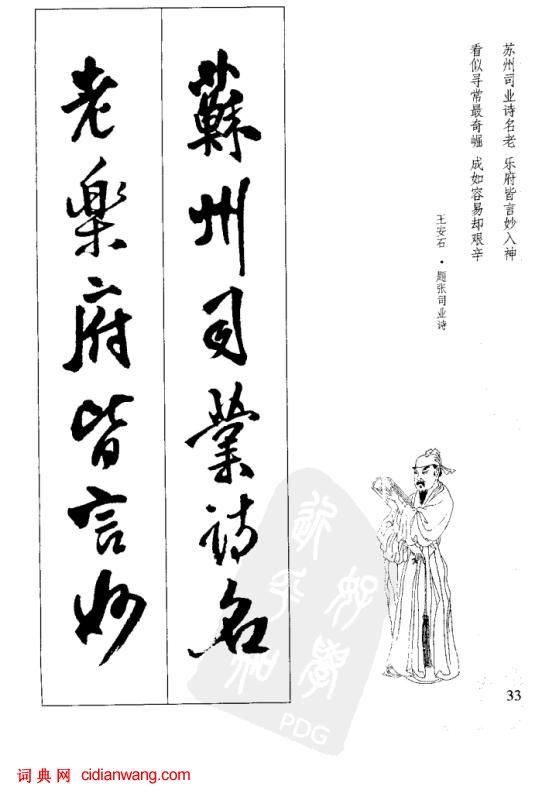 苏州司业诗名老 乐府皆言妙入神
看似寻常最奇崛 成如容易却艰辛
王安石·题张司业诗
蘇州司業诗名
老樂府皆言妙
33
好學
PDG
词典网 cidianwang.com